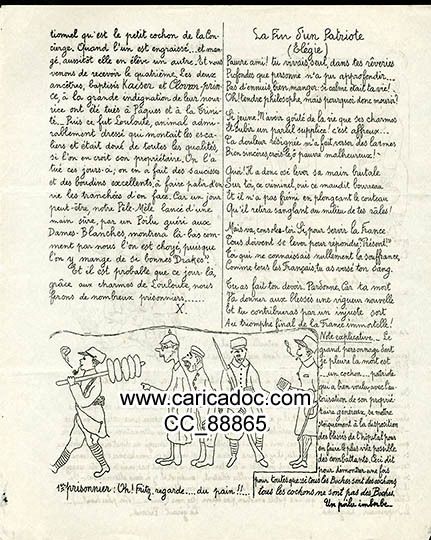 tionnel qu'est le petit cochon de la Con-
cierge. Quand l'un est engraissé... et man-
gé, aussitôt elle en élève un autre. Et nous
venons de recevoir le quatrième. Les deux
ancêtres, baptisés Kaiser et Clovon-prin-
ce, à la grande indignation de leur nour-
rice ont été tués à Pâques et à la Trini-
té.... Puis ce fut Louloute, animal admi-
rablement dressé qui montait les esca-
liers et était doué de toutes les qualités,
si l'on en croit son propriétaire. On l'a
tué ces jours-ci, on en a fait des saucisses
et des boudins excellents, à faire palir d'en
vie les tranchées d'en face. Car un jour
peut-être, notre Pot-Mêlé, lancé d'une
main sûre, par un Poilu guéri aux
Dames-Blanches, montrera là-bas com-
ment par nous l'on est choyé, puisque
l'on y mange de si bonnes Drakes!!
Et il est probable que ce jour là,
grâce aux charmes de Louloute, nous
ferons de nombreux prisonniers......
X.
La Fin d'un Patriote
(Elégie)
Pauvre ami! tu vivais seul, dans tes rêveries
Profondes que personne n'a pu approfondir...
Pas d'ennuis, bien manger: si calme était ta vie!
Oh! tendre philosophe, mais pourquoi donc mourir!
Si jeune! N'avoir goûté de la vie que ses charmes
Et subir un pareil supplice! c'est affreux...
Ta douleur résignée m'a fait verser des larmes
Bien sincères, crois-le, ô pauvre malheureux!
Quoi! Il a donc osé lever sa main brutale
Sur toi, ce criminel, oui ce maudit bourreau
Et il n'a pas frémi en plongeant le couteau
Qu'il retira sanglant au milieu de tes râles!
Mais va, console-toi. Si, pour servir la France
Tous doivent se lever pour répondre: "Présent!"
Toi qui ne connaissais nullement la souffrance,
Comme tous les Français, tu as versé ton sang.
Tu as fait ton devoir. Pardonne, Car ta mort
Va donner aux blessés une vigueur nouvelle
Et tu contribueras par un injuste sort
Au triomphe final de la France immortelle!
Note explicative._ Le
grand personnage dont
je pleure la mort est
...un cochon... patriote
qui a bien voulu, avec l'au-
torisation de son proprié-
taire généreux, se mettre
stoïquement à la disposition
des blessés de l'hôpital pour
en faire le plus vite possible
des combattants. Ceci dit
pour démontrer une fois
pour toutes que: si tous les Boches sont des cochons
tous les cochons ne sont pas des Boches.
Un poilu imberbe...
www.caricadoc.com
CC_88865
1er prisonnier: Oh! Fritz, regarde.... du pain!!...